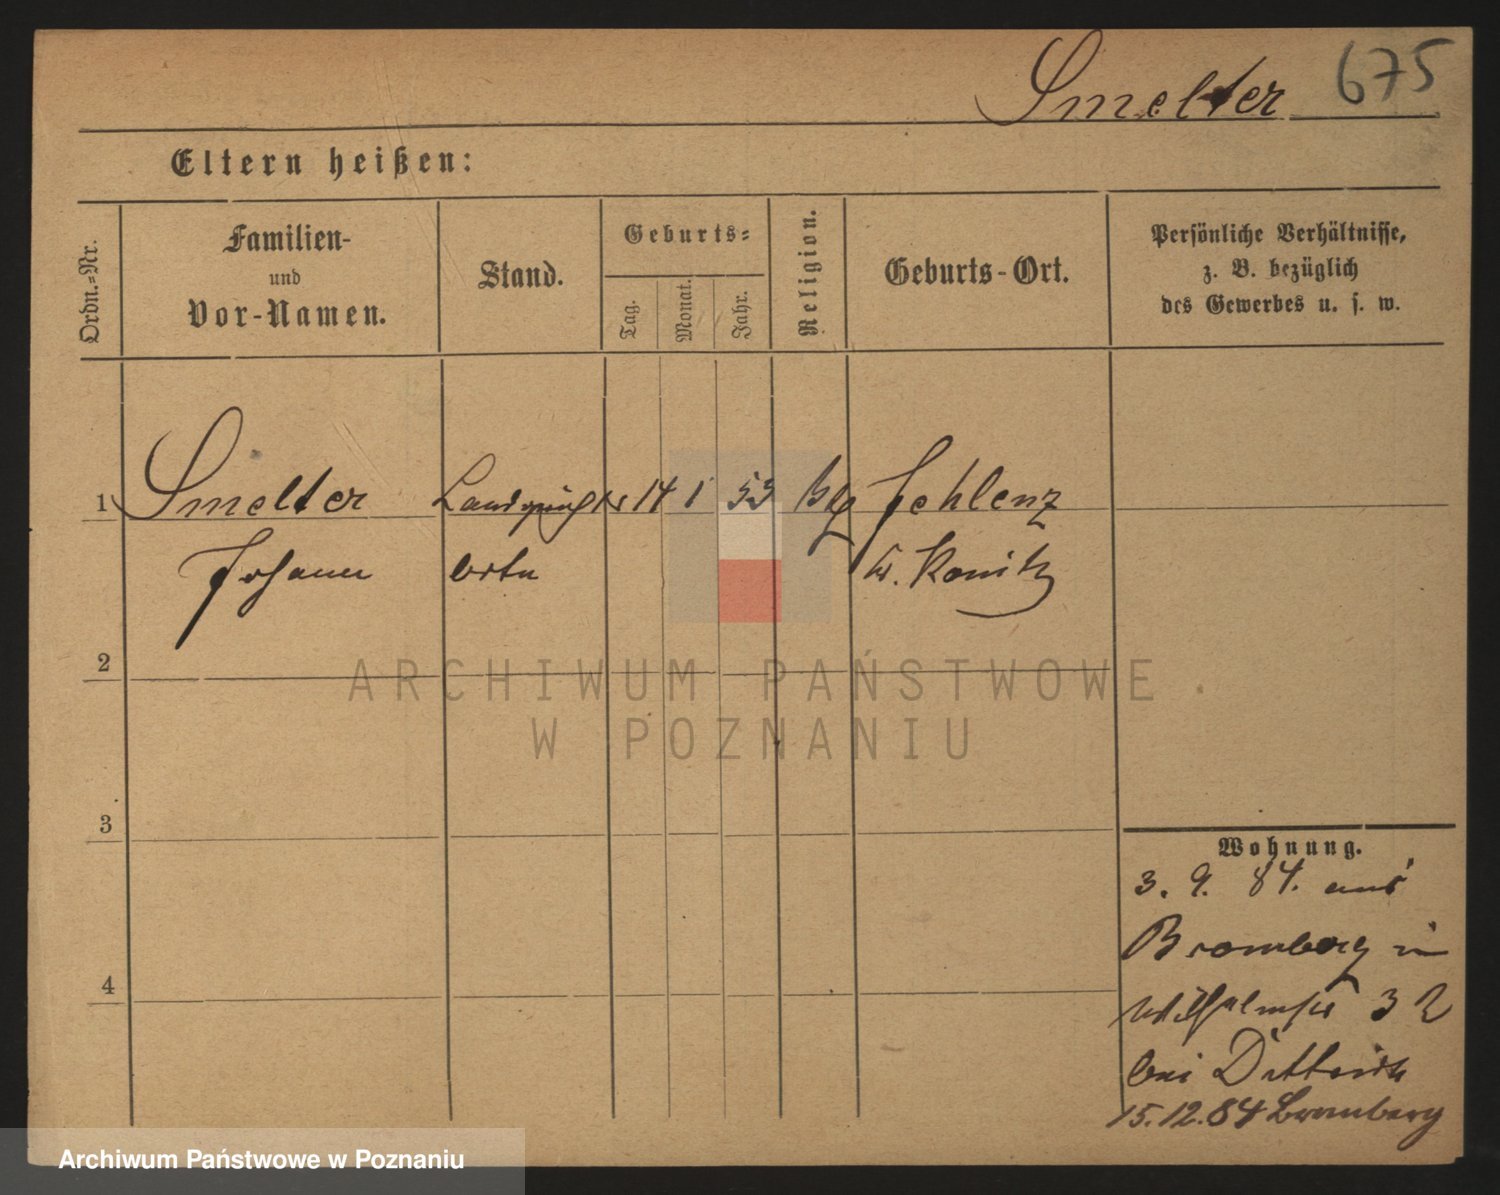 Smelter 675
Eltern heißen:
Ordn.-Nr.
Familien-
und
Vor-Namen.
Stand.
Geburts-
Tag.
Monat.
Jahr.
Religion.
Geburts-Ort.
Persönliche Verhältnisse,
z. B. bezüglich
des Gewerbes u. s. w.
1 Smelter 14 1 53 Jehlenz
Johann K. Konitz
2
3
4
Wohnung.
3. 9. 84. aus
Bromberg in
Wilhelmstr 32
bei
15.12.84 Bromberg
ARCHIWUM PAŃSTWOWE
W POZNANIU
Archiwum Państwowe w Poznaniu